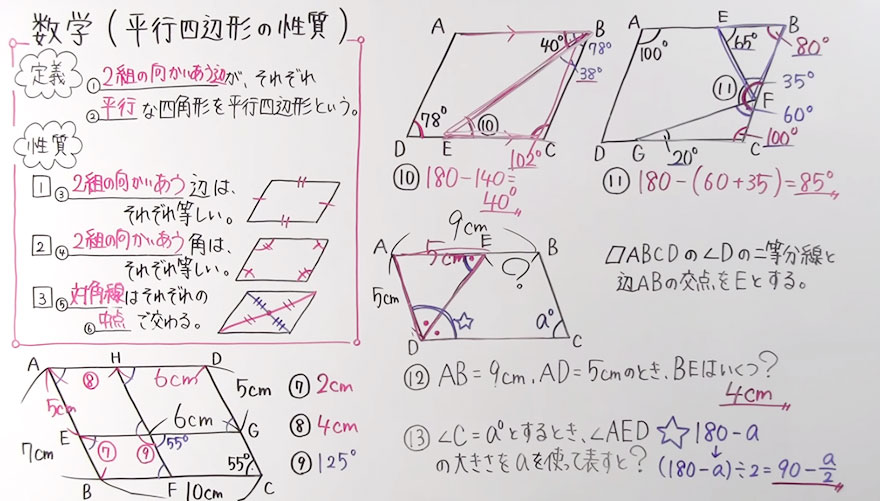 数学(平行四辺形の性質)
定義
①2組の向かいあう辺が、それぞれ
②平行な四角形を平行四辺形という。
性質
1 ③2組の向かいあう辺は、
それぞれ等しい。
2 ④2組の向かいあう角は、
それぞれ等しい。
3 ⑤対角線はそれぞれの
⑥中点で交わる。
A H D
⑧ 6cm
5cm 5cm
6cm
E G
7cm ⑦ ⑨ 55° 55°
B F C
10cm
⑦ 2cm
⑧ 4cm
⑨ 125°
A B
40° 78°
38°
78° ⑩
D E C
102°
⑩ 180-140=
40°
A E B
100° 65° 80°
35°
⑪ F
60°
100°
D G C
20°
⑪ 180-(60+35)=85°
9cm
A E B
5cm ?
5cm
☆ a°
D C
▱ABCDの∠Dの二等分線と
辺ABの交点をEとする。
⑫ AB=9cm、AD=5cmのとき、BEはいくつ?
4cm
⑬ ∠C=a°とするとき、∠AED
の大きさをaを使って表すと?
☆180-a
↓
(180-a)÷2=90-a/2